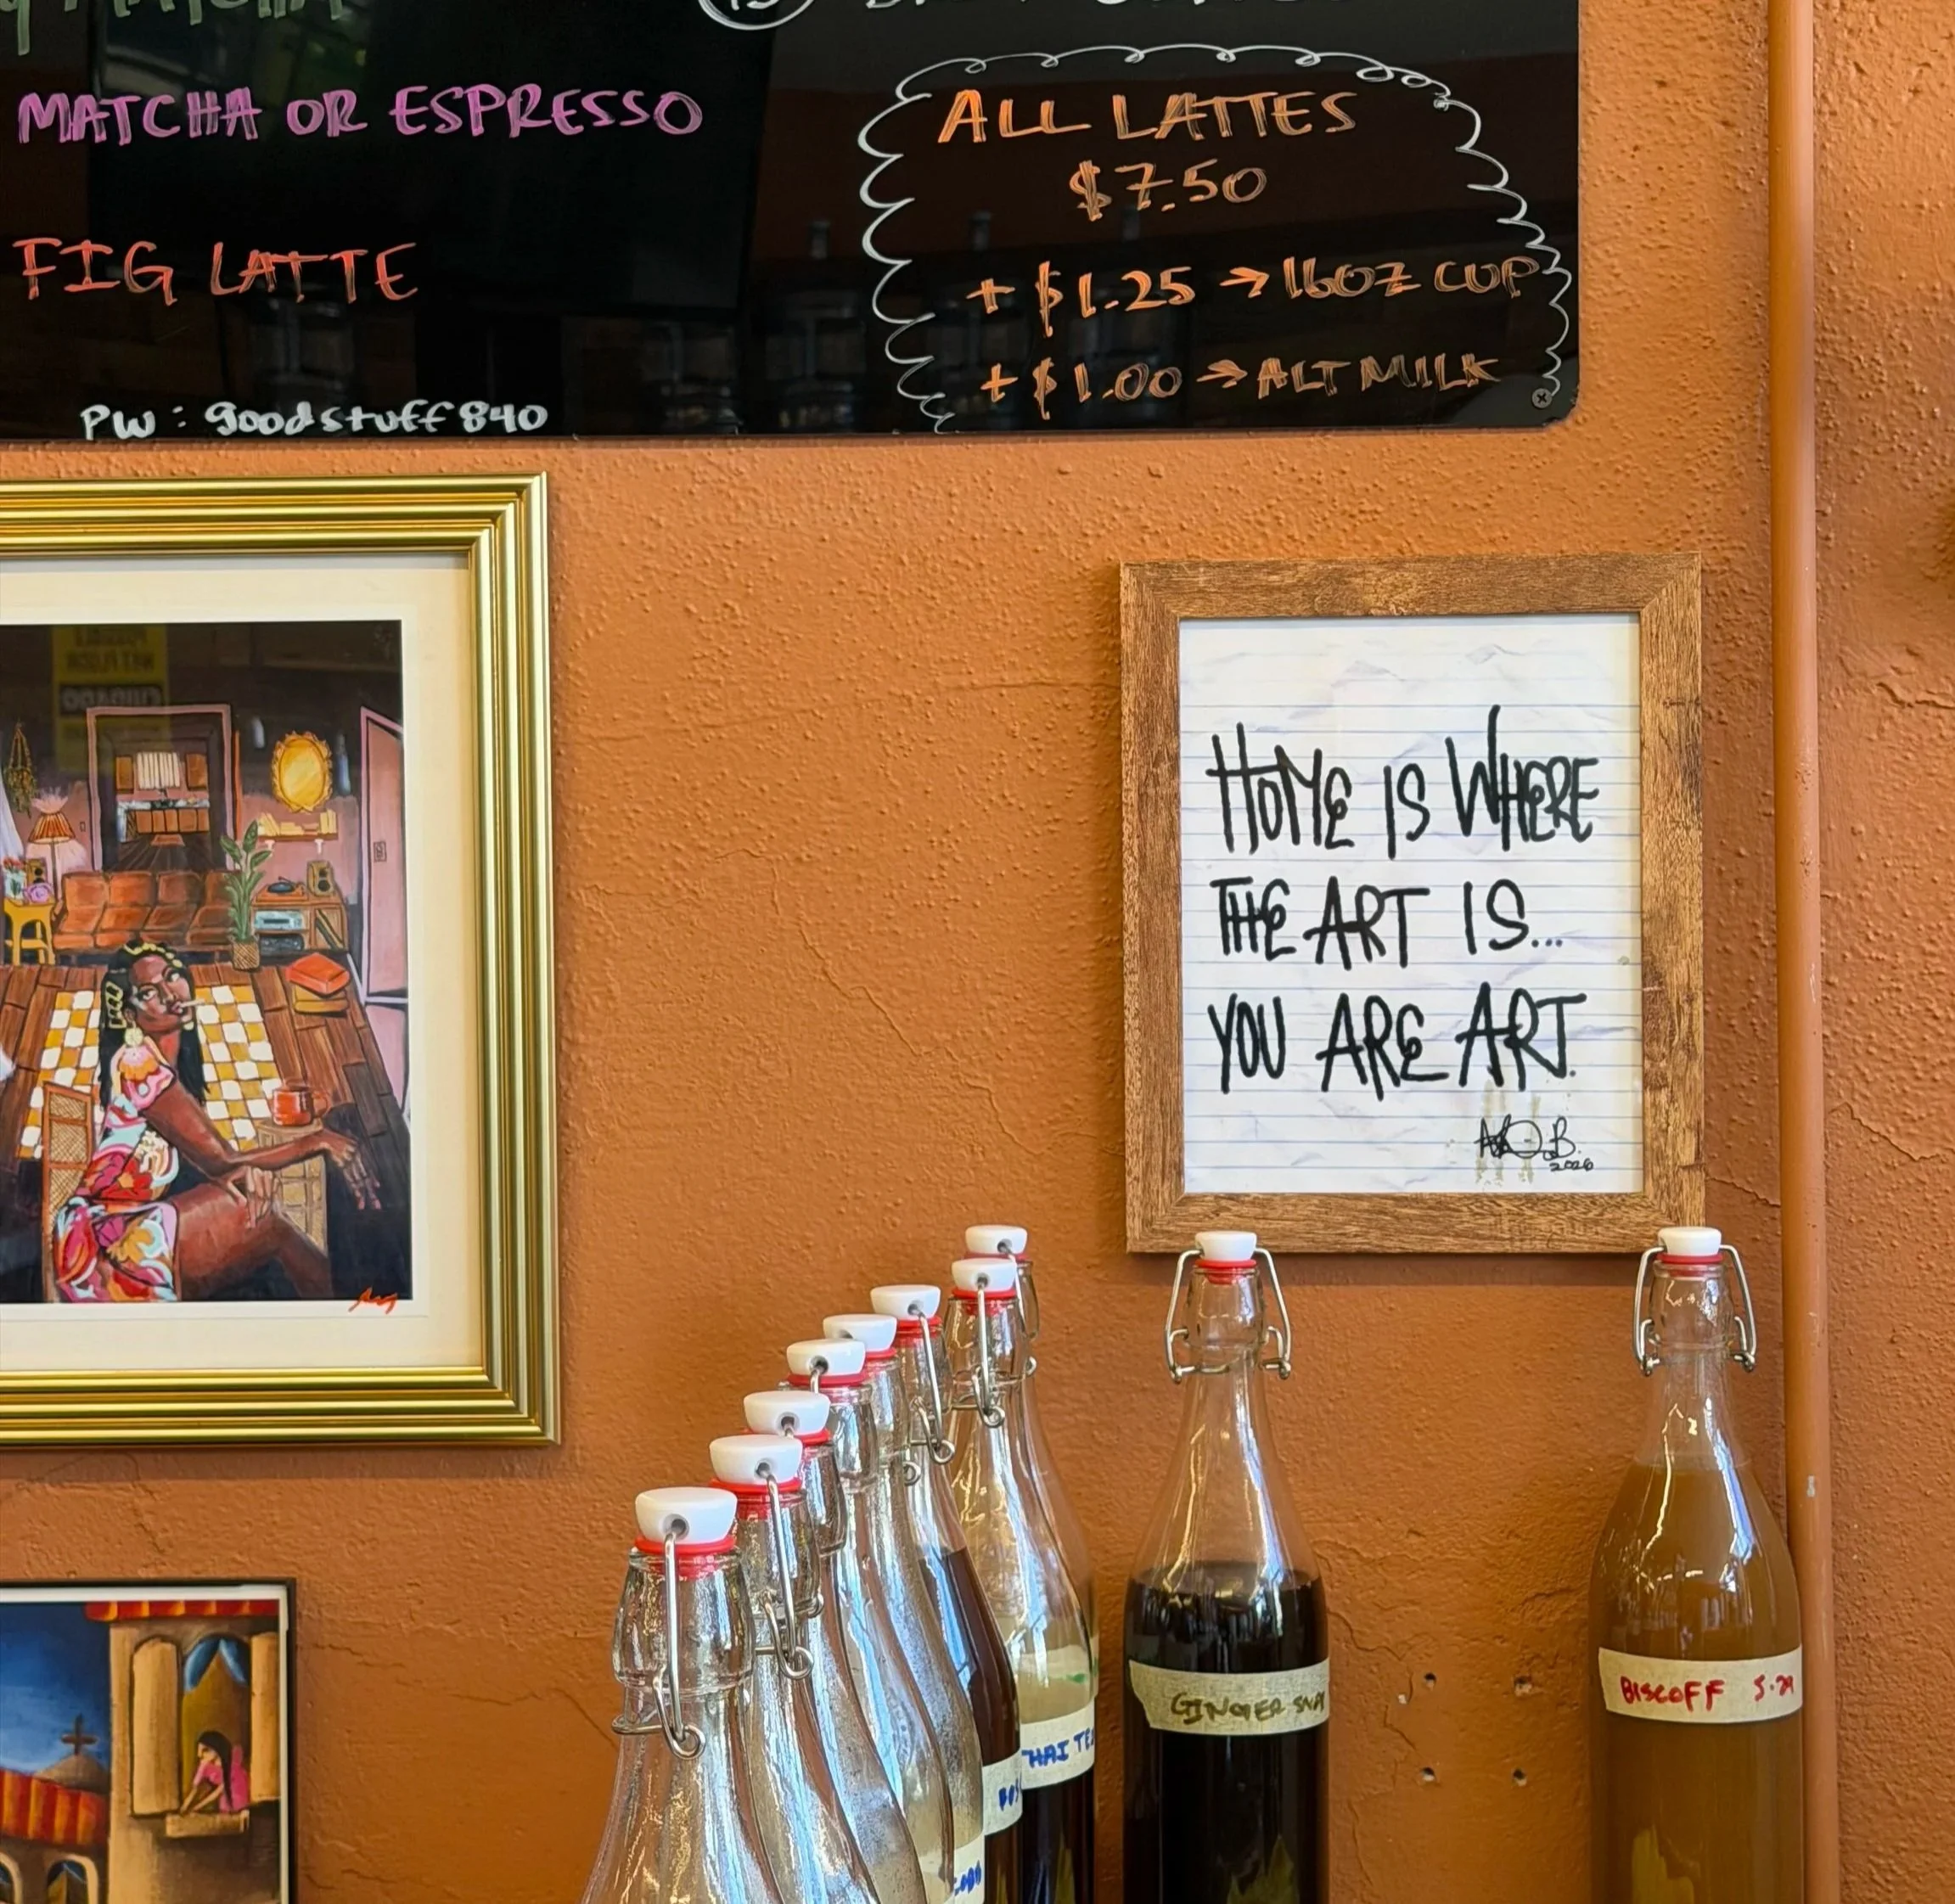 MATCHA
MATCHA OR ESPRESSO
FIG LATTE
PW: goodstuff840
ALL LATTES
$7.50
+ $1.25 → 16OZ CUP
+ $1.00 → ALT MILK
HOME IS WHERE
THE ART IS...
YOU ARE ART.
2026
THAI TEA
GINGER SNAP
BISCOFF 5.29